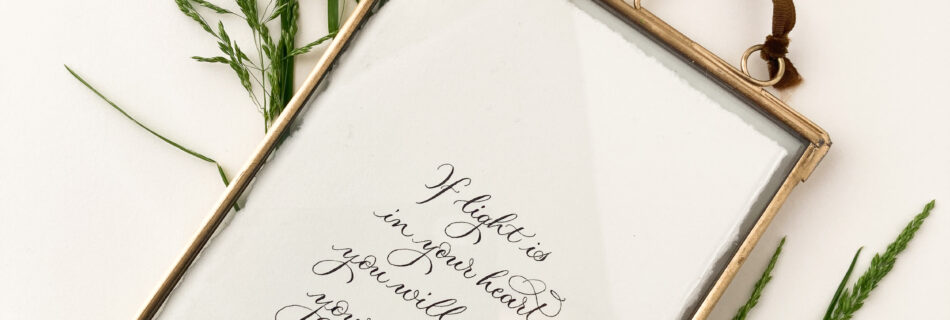 If light is
in your heart
you will
your